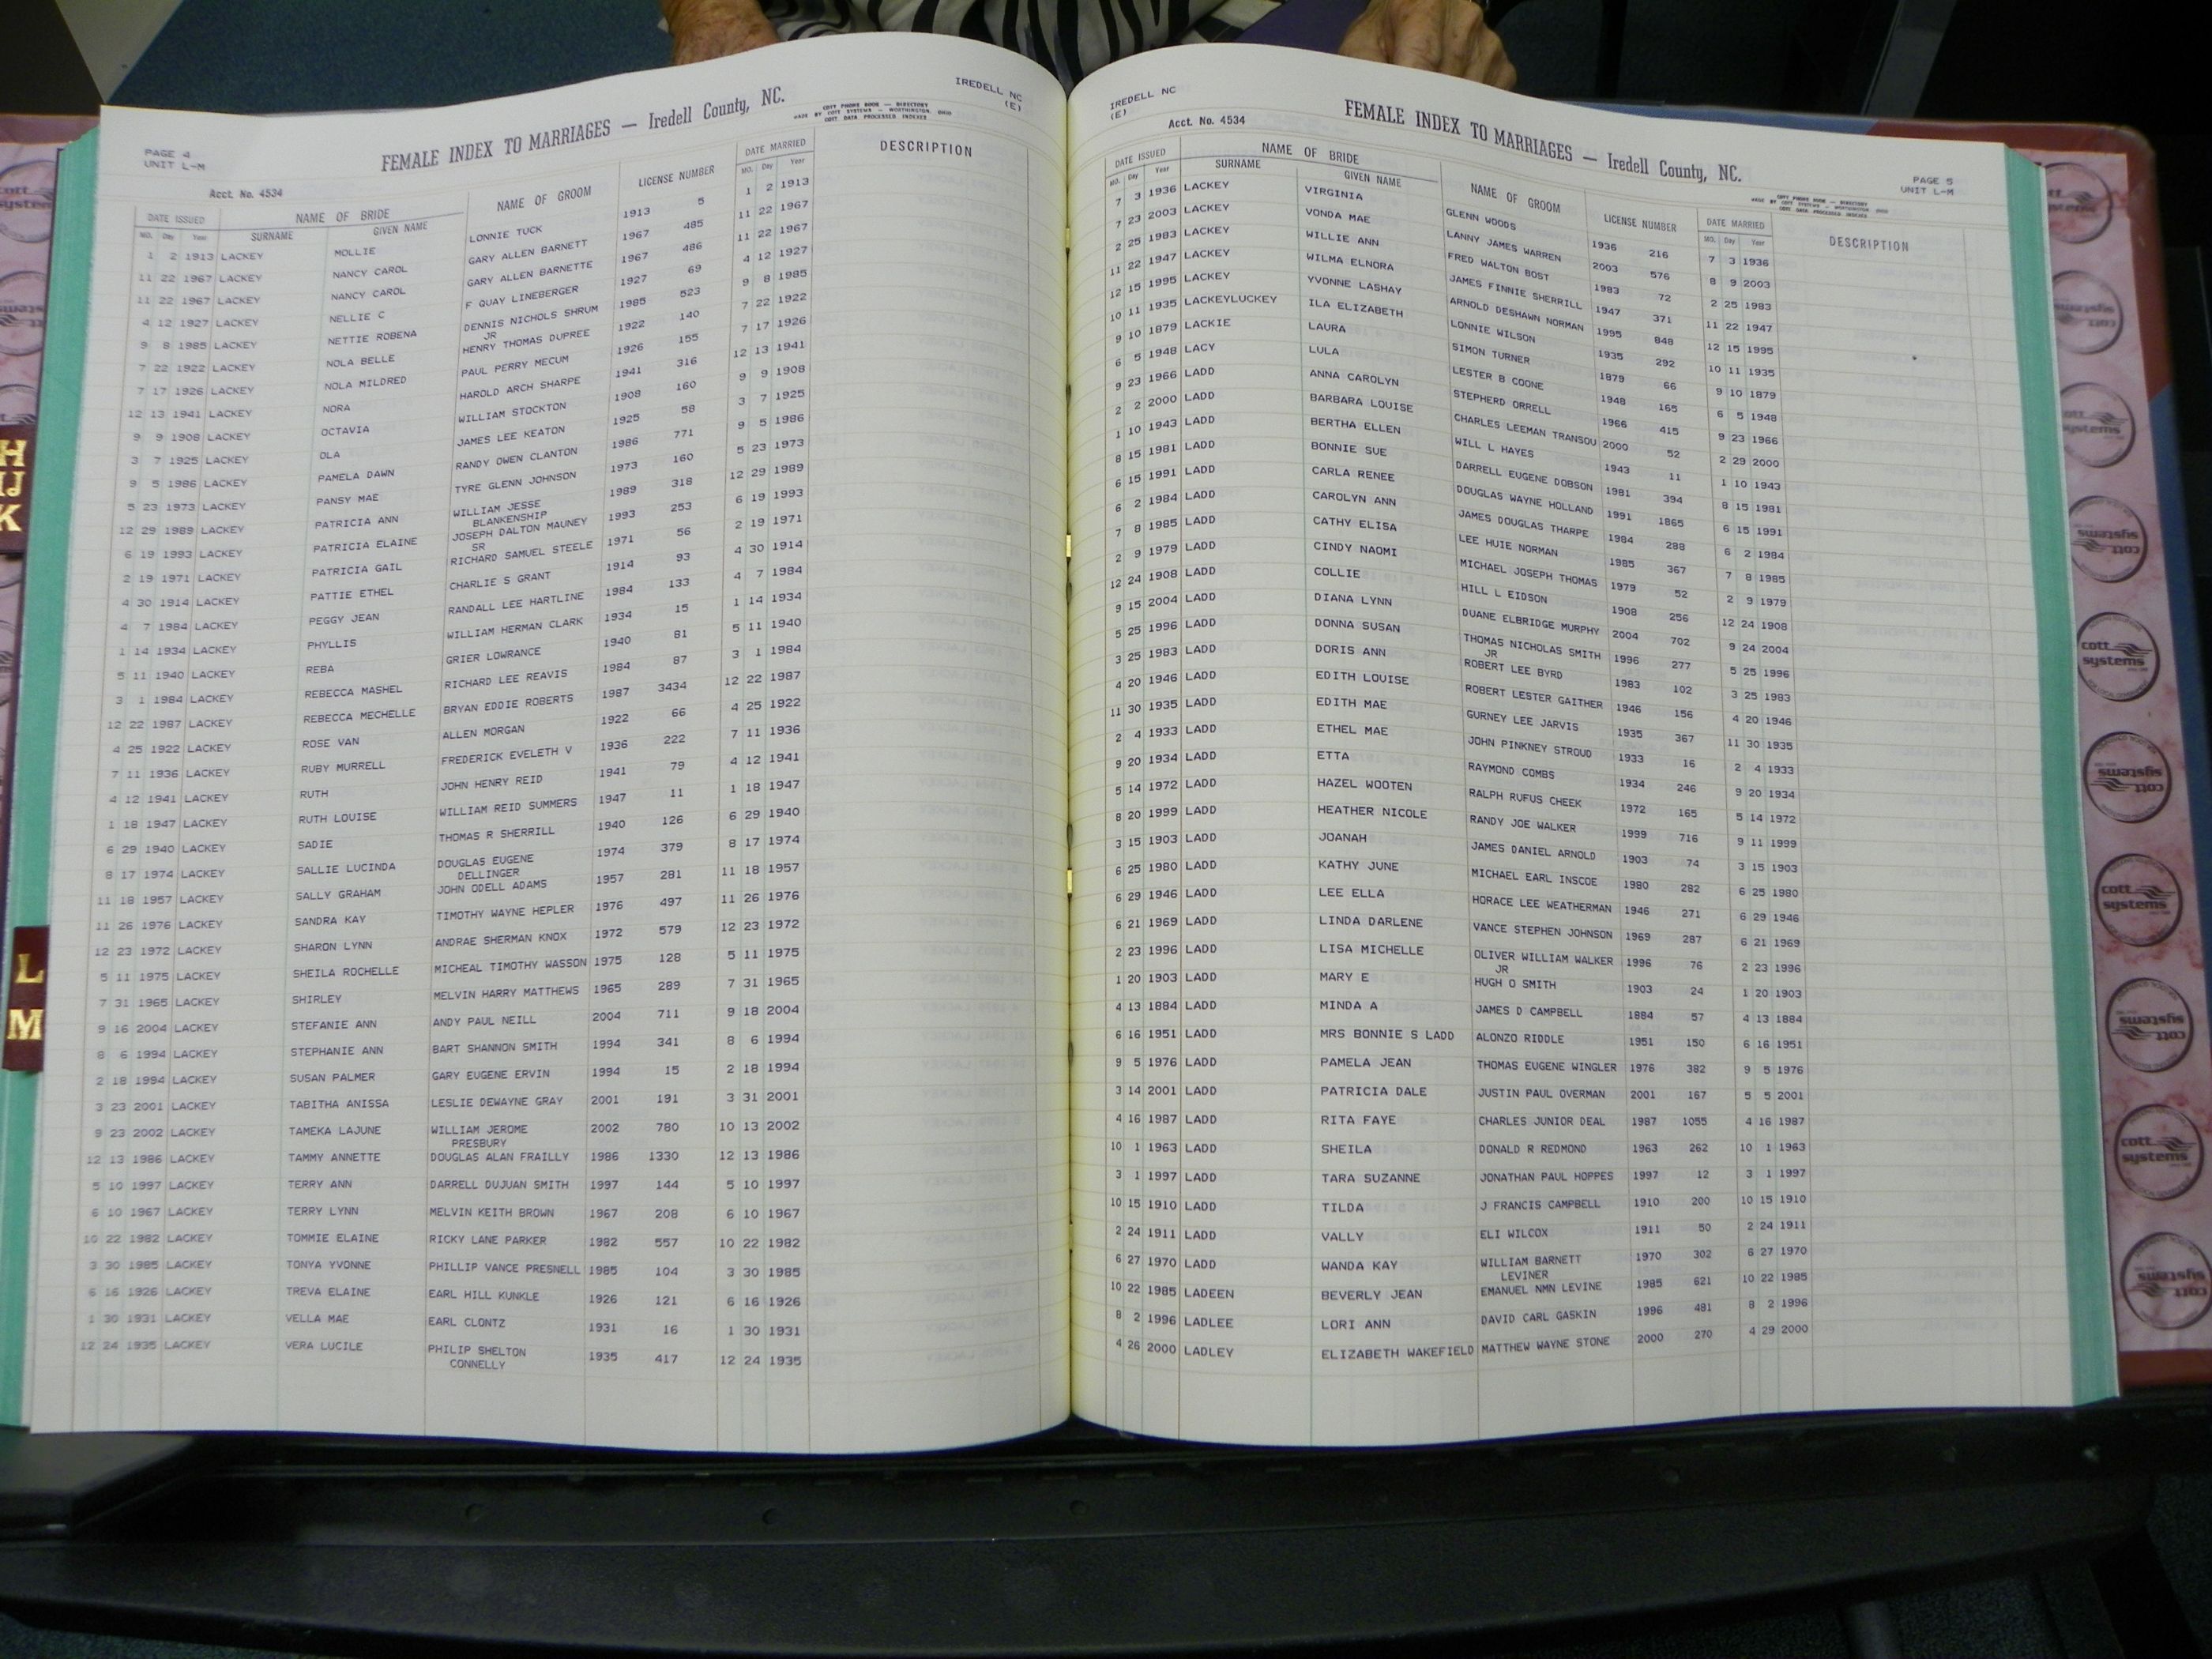 IREDELL NC
(E)
FEMALE INDEX TO MARRIAGES — Iredell County, NC.
COTT PHONE BOOK — DIRECTORY
MADE BY COTT SYSTEMS — WORTHINGTON, OHIO
COTT DATA PROCESSED INDEXES
PAGE 4
UNIT L-M
Acct. No. 4534
DATE ISSUED NAME OF BRIDE NAME OF GROOM LICENSE NUMBER DATE MARRIED DESCRIPTION
MO. Day Year SURNAME GIVEN NAME MO. Day Year
1 2 1913 LACKEY MOLLIE LONNIE TUCK 1913 5 1 2 1913
11 22 1967 LACKEY NANCY CAROL GARY ALLEN BARNETT 1967 485 11 22 1967
11 22 1967 LACKEY NANCY CAROL GARY ALLEN BARNETTE 1967 486 11 22 1967
4 12 1927 LACKEY NELLIE C F QUAY LINEBERGER 1927 69 4 12 1927
9 8 1985 LACKEY NETTIE ROBENA DENNIS NICHOLS SHRUM 1985 523 9 8 1985
JR
7 22 1922 LACKEY NOLA BELLE HENRY THOMAS DUPREE 1922 140 7 22 1922
7 17 1926 LACKEY NOLA MILDRED PAUL PERRY MECUM 1926 155 7 17 1926
12 13 1941 LACKEY NORA HAROLD ARCH SHARPE 1941 316 12 13 1941
9 9 1908 LACKEY OCTAVIA WILLIAM STOCKTON 1908 160 9 9 1908
3 7 1925 LACKEY OLA JAMES LEE KEATON 1925 58 3 7 1925
9 5 1986 LACKEY PAMELA DAWN RANDY OWEN CLANTON 1986 771 9 5 1986
5 23 1973 LACKEY PANSY MAE TYRE GLENN JOHNSON 1973 160 5 23 1973
12 29 1989 LACKEY PATRICIA ANN WILLIAM JESSE 1989 318 12 29 1989
BLANKENSHIP
6 19 1993 LACKEY PATRICIA ELAINE JOSEPH DALTON MAUNEY 1993 253 6 19 1993
SR
2 19 1971 LACKEY PATRICIA GAIL RICHARD SAMUEL STEELE 1971 56 2 19 1971
4 30 1914 LACKEY PATTIE ETHEL CHARLIE S GRANT 1914 93 4 30 1914
4 7 1984 LACKEY PEGGY JEAN RANDALL LEE HARTLINE 1984 133 4 7 1984
1 14 1934 LACKEY PHYLLIS WILLIAM HERMAN CLARK 1934 15 1 14 1934
5 11 1940 LACKEY REBA GRIER LOWRANCE 1940 81 5 11 1940
3 1 1984 LACKEY REBECCA MASHEL RICHARD LEE REAVIS 1984 87 3 1 1984
12 22 1987 LACKEY REBECCA MECHELLE BRYAN EDDIE ROBERTS 1987 3434 12 22 1987
4 25 1922 LACKEY ROSE VAN ALLEN MORGAN 1922 66 4 25 1922
7 11 1936 LACKEY RUBY MURRELL FREDERICK EVELETH V 1936 222 7 11 1936
4 12 1941 LACKEY RUTH JOHN HENRY REID 1941 79 4 12 1941
1 18 1947 LACKEY RUTH LOUISE WILLIAM REID SUMMERS 1947 11 1 18 1947
6 29 1940 LACKEY SADIE THOMAS R SHERRILL 1940 126 6 29 1940
8 17 1974 LACKEY SALLIE LUCINDA DOUGLAS EUGENE 1974 379 8 17 1974
DELLINGER
11 18 1957 LACKEY SALLY GRAHAM JOHN ODELL ADAMS 1957 281 11 18 1957
11 26 1976 LACKEY SANDRA KAY TIMOTHY WAYNE HEPLER 1976 497 11 26 1976
12 23 1972 LACKEY SHARON LYNN ANDRAE SHERMAN KNOX 1972 579 12 23 1972
5 11 1975 LACKEY SHEILA ROCHELLE MICHEAL TIMOTHY WASSON 1975 128 5 11 1975
7 31 1965 LACKEY SHIRLEY MELVIN HARRY MATTHEWS 1965 289 7 31 1965
9 16 2004 LACKEY STEFANIE ANN ANDY PAUL NEILL 2004 711 9 18 2004
8 6 1994 LACKEY STEPHANIE ANN BART SHANNON SMITH 1994 341 8 6 1994
2 18 1994 LACKEY SUSAN PALMER GARY EUGENE ERVIN 1994 15 2 18 1994
3 23 2001 LACKEY TABITHA ANISSA LESLIE DEWAYNE GRAY 2001 191 3 31 2001
9 23 2002 LACKEY TAMEKA LAJUNE WILLIAM JEROME 2002 780 10 13 2002
PRESBURY
12 13 1986 LACKEY TAMMY ANNETTE DOUGLAS ALAN FRAILLY 1986 1330 12 13 1986
5 10 1997 LACKEY TERRY ANN DARRELL DUJUAN SMITH 1997 144 5 10 1997
6 10 1967 LACKEY TERRY LYNN MELVIN KEITH BROWN 1967 208 6 10 1967
10 22 1982 LACKEY TOMMIE ELAINE RICKY LANE PARKER 1982 557 10 22 1982
3 30 1985 LACKEY TONYA YVONNE PHILLIP VANCE PRESNELL 1985 104 3 30 1985
6 16 1926 LACKEY TREVA ELAINE EARL HILL KUNKLE 1926 121 6 16 1926
1 30 1931 LACKEY VELLA MAE EARL CLONTZ 1931 16 1 30 1931
12 24 1935 LACKEY VERA LUCILE PHILIP SHELTON 1935 417 12 24 1935
CONNELLY
IREDELL NC
(E)
Acct. No. 4534
FEMALE INDEX TO MARRIAGES — Iredell County, NC.
COTT PHONE BOOK — DIRECTORY
MADE BY COTT SYSTEMS — WORTHINGTON, OHIO
COTT DATA PROCESSED INDEXES
PAGE 5
UNIT L-M
DATE ISSUED NAME OF BRIDE NAME OF GROOM LICENSE NUMBER DATE MARRIED DESCRIPTION
MO. Day Year SURNAME GIVEN NAME MO. Day Year
7 3 1936 LACKEY VIRGINIA GLENN WOODS 1936 216 7 3 1936
7 23 2003 LACKEY VONDA MAE LANNY JAMES WARREN 2003 576 8 9 2003
2 25 1983 LACKEY WILLIE ANN FRED WALTON BOST 1983 72 2 25 1983
11 22 1947 LACKEY WILMA ELNORA JAMES FINNIE SHERRILL 1947 371 11 22 1947
12 15 1995 LACKEY YVONNE LASHAY ARNOLD DESHAWN NORMAN 1995 848 12 15 1995
10 11 1935 LACKEYLUCKEY ILA ELIZABETH LONNIE WILSON 1935 292 10 11 1935
9 10 1879 LACKIE LAURA SIMON TURNER 1879 66 9 10 1879
6 5 1948 LACY LULA LESTER B COONE 1948 165 6 5 1948
9 23 1966 LADD ANNA CAROLYN STEPHERD ORRELL 1966 415 9 23 1966
2 2 2000 LADD BARBARA LOUISE CHARLES LEEMAN TRANSOU 2000 52 2 29 2000
1 10 1943 LADD BERTHA ELLEN WILL L HAYES 1943 11 1 10 1943
8 15 1981 LADD BONNIE SUE DARRELL EUGENE DOBSON 1981 394 8 15 1981
6 15 1991 LADD CARLA RENEE DOUGLAS WAYNE HOLLAND 1991 1865 6 15 1991
6 2 1984 LADD CAROLYN ANN JAMES DOUGLAS THARPE 1984 288 6 2 1984
7 8 1985 LADD CATHY ELISA LEE HUIE NORMAN 1985 367 7 8 1985
2 9 1979 LADD CINDY NAOMI MICHAEL JOSEPH THOMAS 1979 52 2 9 1979
12 24 1908 LADD COLLIE HILL L EIDSON 1908 256 12 24 1908
9 15 2004 LADD DIANA LYNN DUANE ELBRIDGE MURPHY 2004 702 9 24 2004
5 25 1996 LADD DONNA SUSAN THOMAS NICHOLAS SMITH 1996 277 5 25 1996
JR
3 25 1983 LADD DORIS ANN ROBERT LEE BYRD 1983 102 3 25 1983
4 20 1946 LADD EDITH LOUISE ROBERT LESTER GAITHER 1946 156 4 20 1946
11 30 1935 LADD EDITH MAE GURNEY LEE JARVIS 1935 367 11 30 1935
2 4 1933 LADD ETHEL MAE JOHN PINKNEY STROUD 1933 16 2 4 1933
9 20 1934 LADD ETTA RAYMOND COMBS 1934 246 9 20 1934
5 14 1972 LADD HAZEL WOOTEN RALPH RUFUS CHEEK 1972 165 5 14 1972
8 20 1999 LADD HEATHER NICOLE RANDY JOE WALKER 1999 716 9 11 1999
3 15 1903 LADD JOANAH JAMES DANIEL ARNOLD 1903 74 3 15 1903
6 25 1980 LADD KATHY JUNE MICHAEL EARL INSCOE 1980 282 6 25 1980
6 29 1946 LADD LEE ELLA HORACE LEE WEATHERMAN 1946 271 6 29 1946
6 21 1969 LADD LINDA DARLENE VANCE STEPHEN JOHNSON 1969 287 6 21 1969
2 23 1996 LADD LISA MICHELLE OLIVER WILLIAM WALKER 1996 76 2 23 1996
JR
1 20 1903 LADD MARY E HUGH O SMITH 1903 24 1 20 1903
4 13 1884 LADD MINDA A JAMES D CAMPBELL 1884 57 4 13 1884
6 16 1951 LADD MRS BONNIE S LADD ALONZO RIDDLE 1951 150 6 16 1951
9 5 1976 LADD PAMELA JEAN THOMAS EUGENE WINGLER 1976 382 9 5 1976
3 14 2001 LADD PATRICIA DALE JUSTIN PAUL OVERMAN 2001 167 5 5 2001
4 16 1987 LADD RITA FAYE CHARLES JUNIOR DEAL 1987 1055 4 16 1987
10 1 1963 LADD SHEILA DONALD R REDMOND 1963 262 10 1 1963
3 1 1997 LADD TARA SUZANNE JONATHAN PAUL HOPPES 1997 12 3 1 1997
10 15 1910 LADD TILDA J FRANCIS CAMPBELL 1910 200 10 15 1910
2 24 1911 LADD VALLY ELI WILCOX 1911 50 2 24 1911
6 27 1970 LADD WANDA KAY WILLIAM BARNETT 1970 302 6 27 1970
LEVINER
10 22 1985 LADEEN BEVERLY JEAN EMANUEL NMN LEVINE 1985 621 10 22 1985
8 2 1996 LADLEE LORI ANN DAVID CARL GASKIN 1996 481 8 2 1996
4 26 2000 LADLEY ELIZABETH WAKEFIELD MATTHEW WAYNE STONE 2000 270 4 29 2000
H
IJ
K
L
M
cott
systems
cott
systems
cott
systems
cott
systems